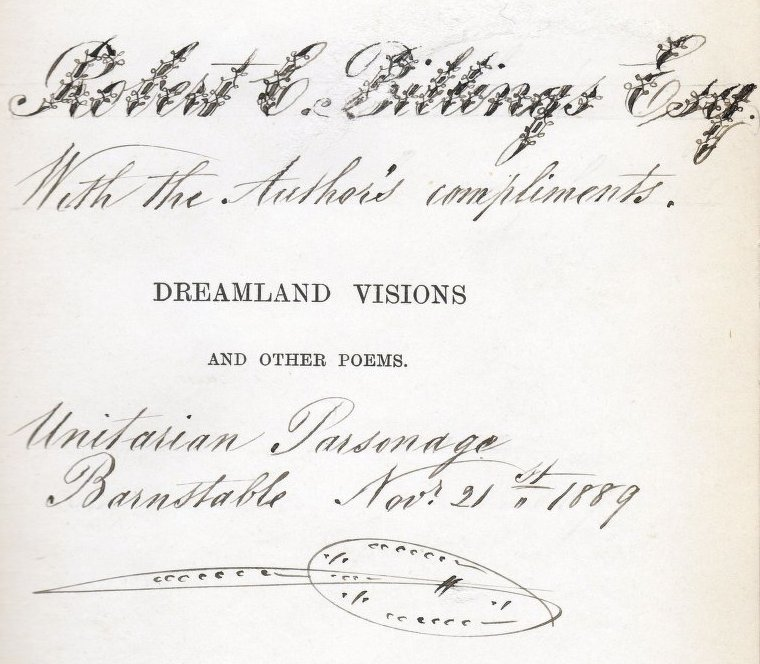 Robert C. Billings Esq.
With the Author's compliments.
DREAMLAND VISIONS
AND OTHER POEMS.
Unitarian Parsonage
Barnstable Novr. 21st 1889